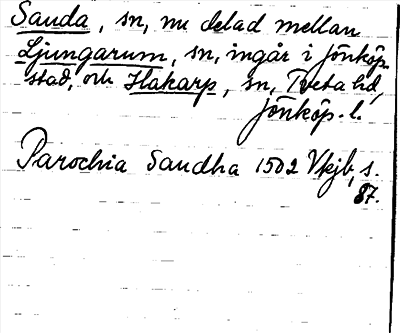 Sanda, sn, nu delad mellan
Ljungarum, sn, ingår i Jönköp.
stad, och Hakarp, sn, Tveta hd,
Jönköp. l.
Parochia Sandha 1502 Vkjb, s.
87.